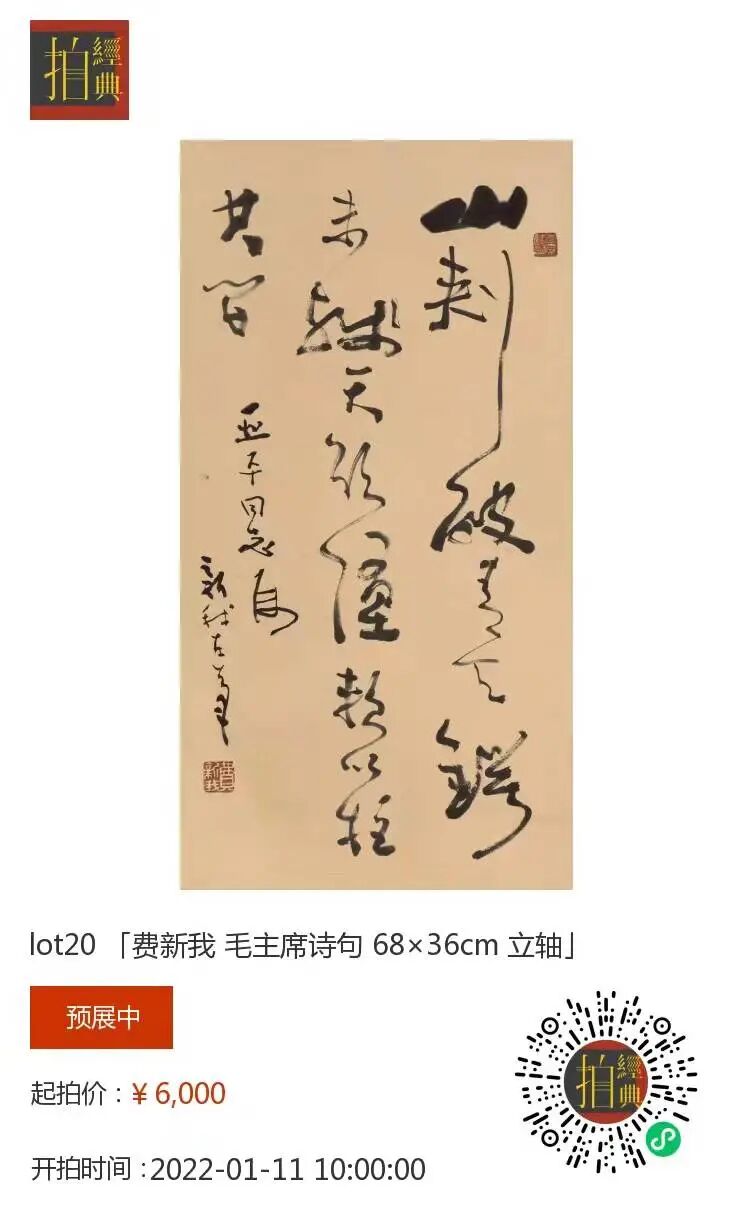 經典拍
山刺破青天鍔
未殘天欲墮賴以拄
其间
亚平同志属
新我左笔
費新我
lot20 「费新我 毛主席诗句 68×36cm 立轴」
预展中
起拍价：¥ 6,000
开拍时间：2022-01-11 10:00:00
經典拍